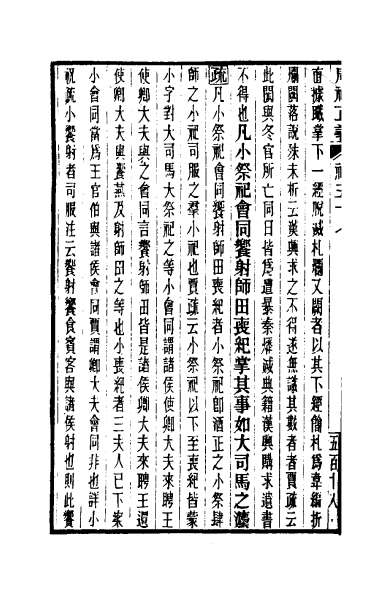 周禮正義 禮五十八
直據職掌下一經脫滅札爛又闕者以其下經簡札為韋編折
爛闕落說殊未析云漢興求之不得遂無識其數者者賈疏云
此闕與冬官所亡同日皆為遭暴秦燔滅典籍漢興購求遺書
不得也凡小祭祀會同饗射師田喪紀掌其事如大司馬之灋
疏凡小祭祀會同饗射師田喪紀者小祭祀即酒正之小祭肆
師之小祀司服之羣小祀也賈疏云小祭祀以下至喪紀皆蒙
小字對大司馬大祭祀之等小會同謂諸侯使卿大夫來聘王
使卿大夫與之會同言饗射師田皆是諸侯卿大夫來聘王還
使卿大夫與饗燕及射師田之等也小喪紀者三夫人已下案
小會同當為王官伯與諸侯會同賈謂卿大夫會同非也詳小
祝疏小饗射者司服注云饗射饗食賓客與諸侯射也則此饗
五百十八